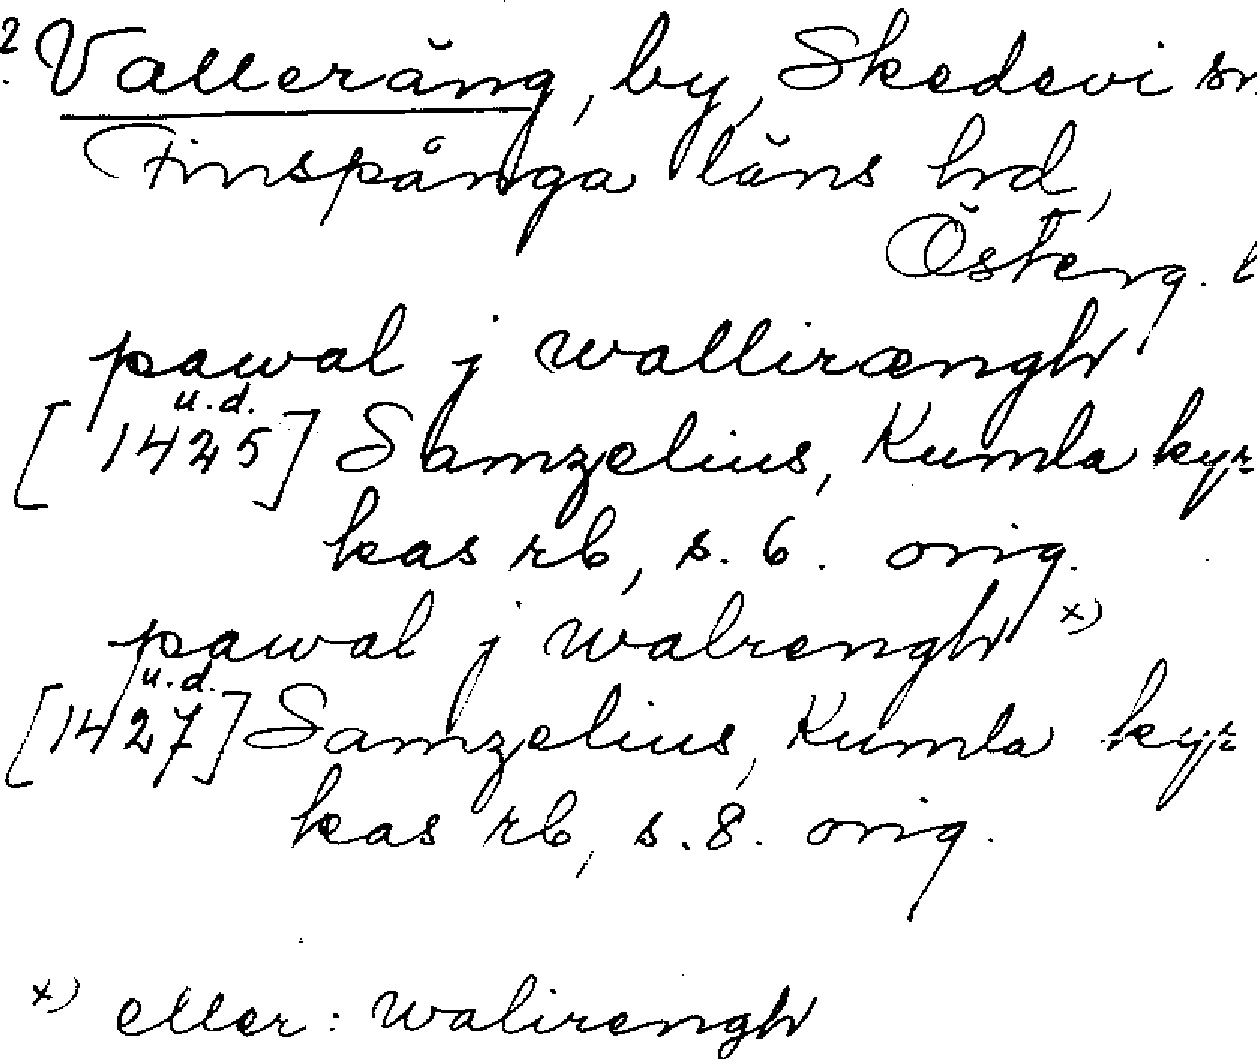 2. Valleräng, by, Skedevi sn
Finspånga läns hd,
Österg. l
pawal j wallirængh
u.d.
[1425] Samzelius, Kumla kyr-
kas rb, s. 6. orig.
pawal j walrengh x)
u.d.
[1427] Samzelius, Kumla kyr-
kas rb, s. 8. orig.
x) eller: walirengh